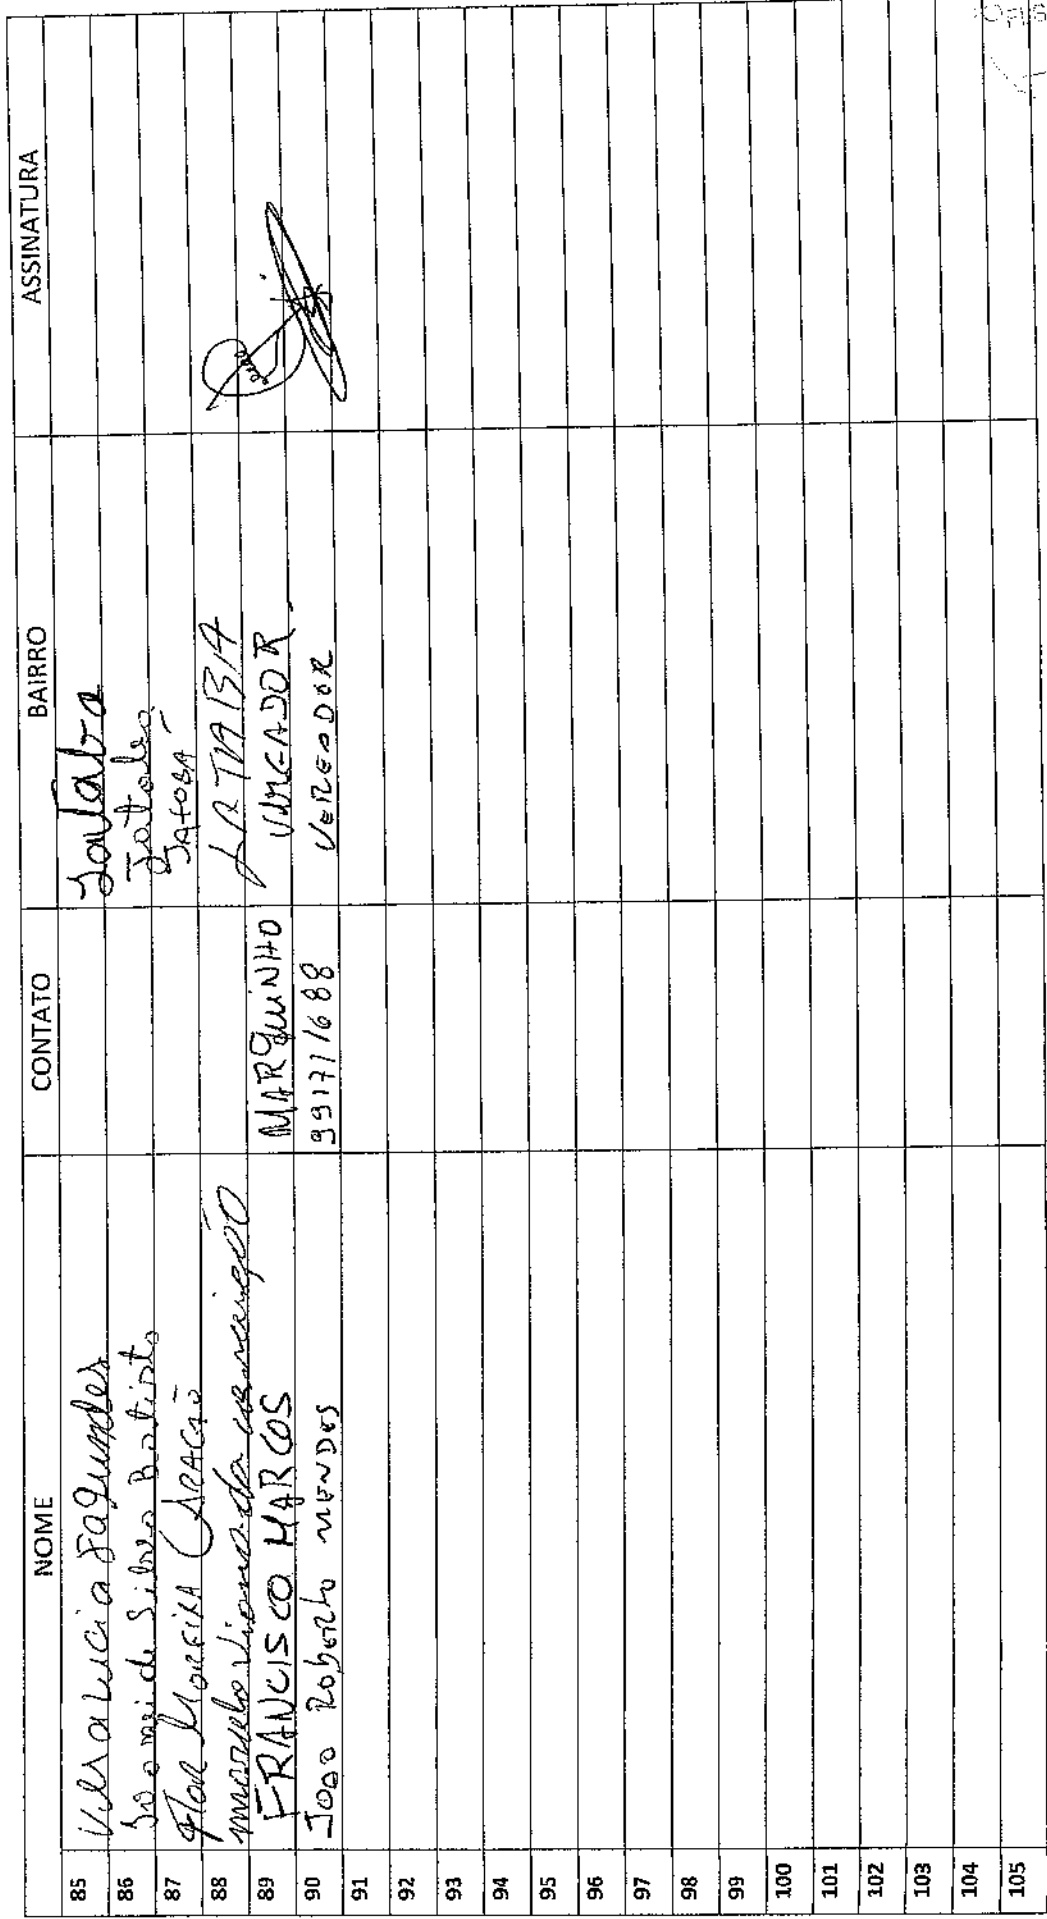 NOME CONTATO BAIRRO ASSINATURA
85 Vera Lucia Fagundes
86 Silva Batista
87 Flor Moreira Jatobá
88 da conceição
89 FRANCISCO MARCOS MARQUINHO VEREADOR
90 João Roberto MENDES 99171688 VEREADOR
91
92
93
94
95
96
97
98
99
100
101
102
103
104
105